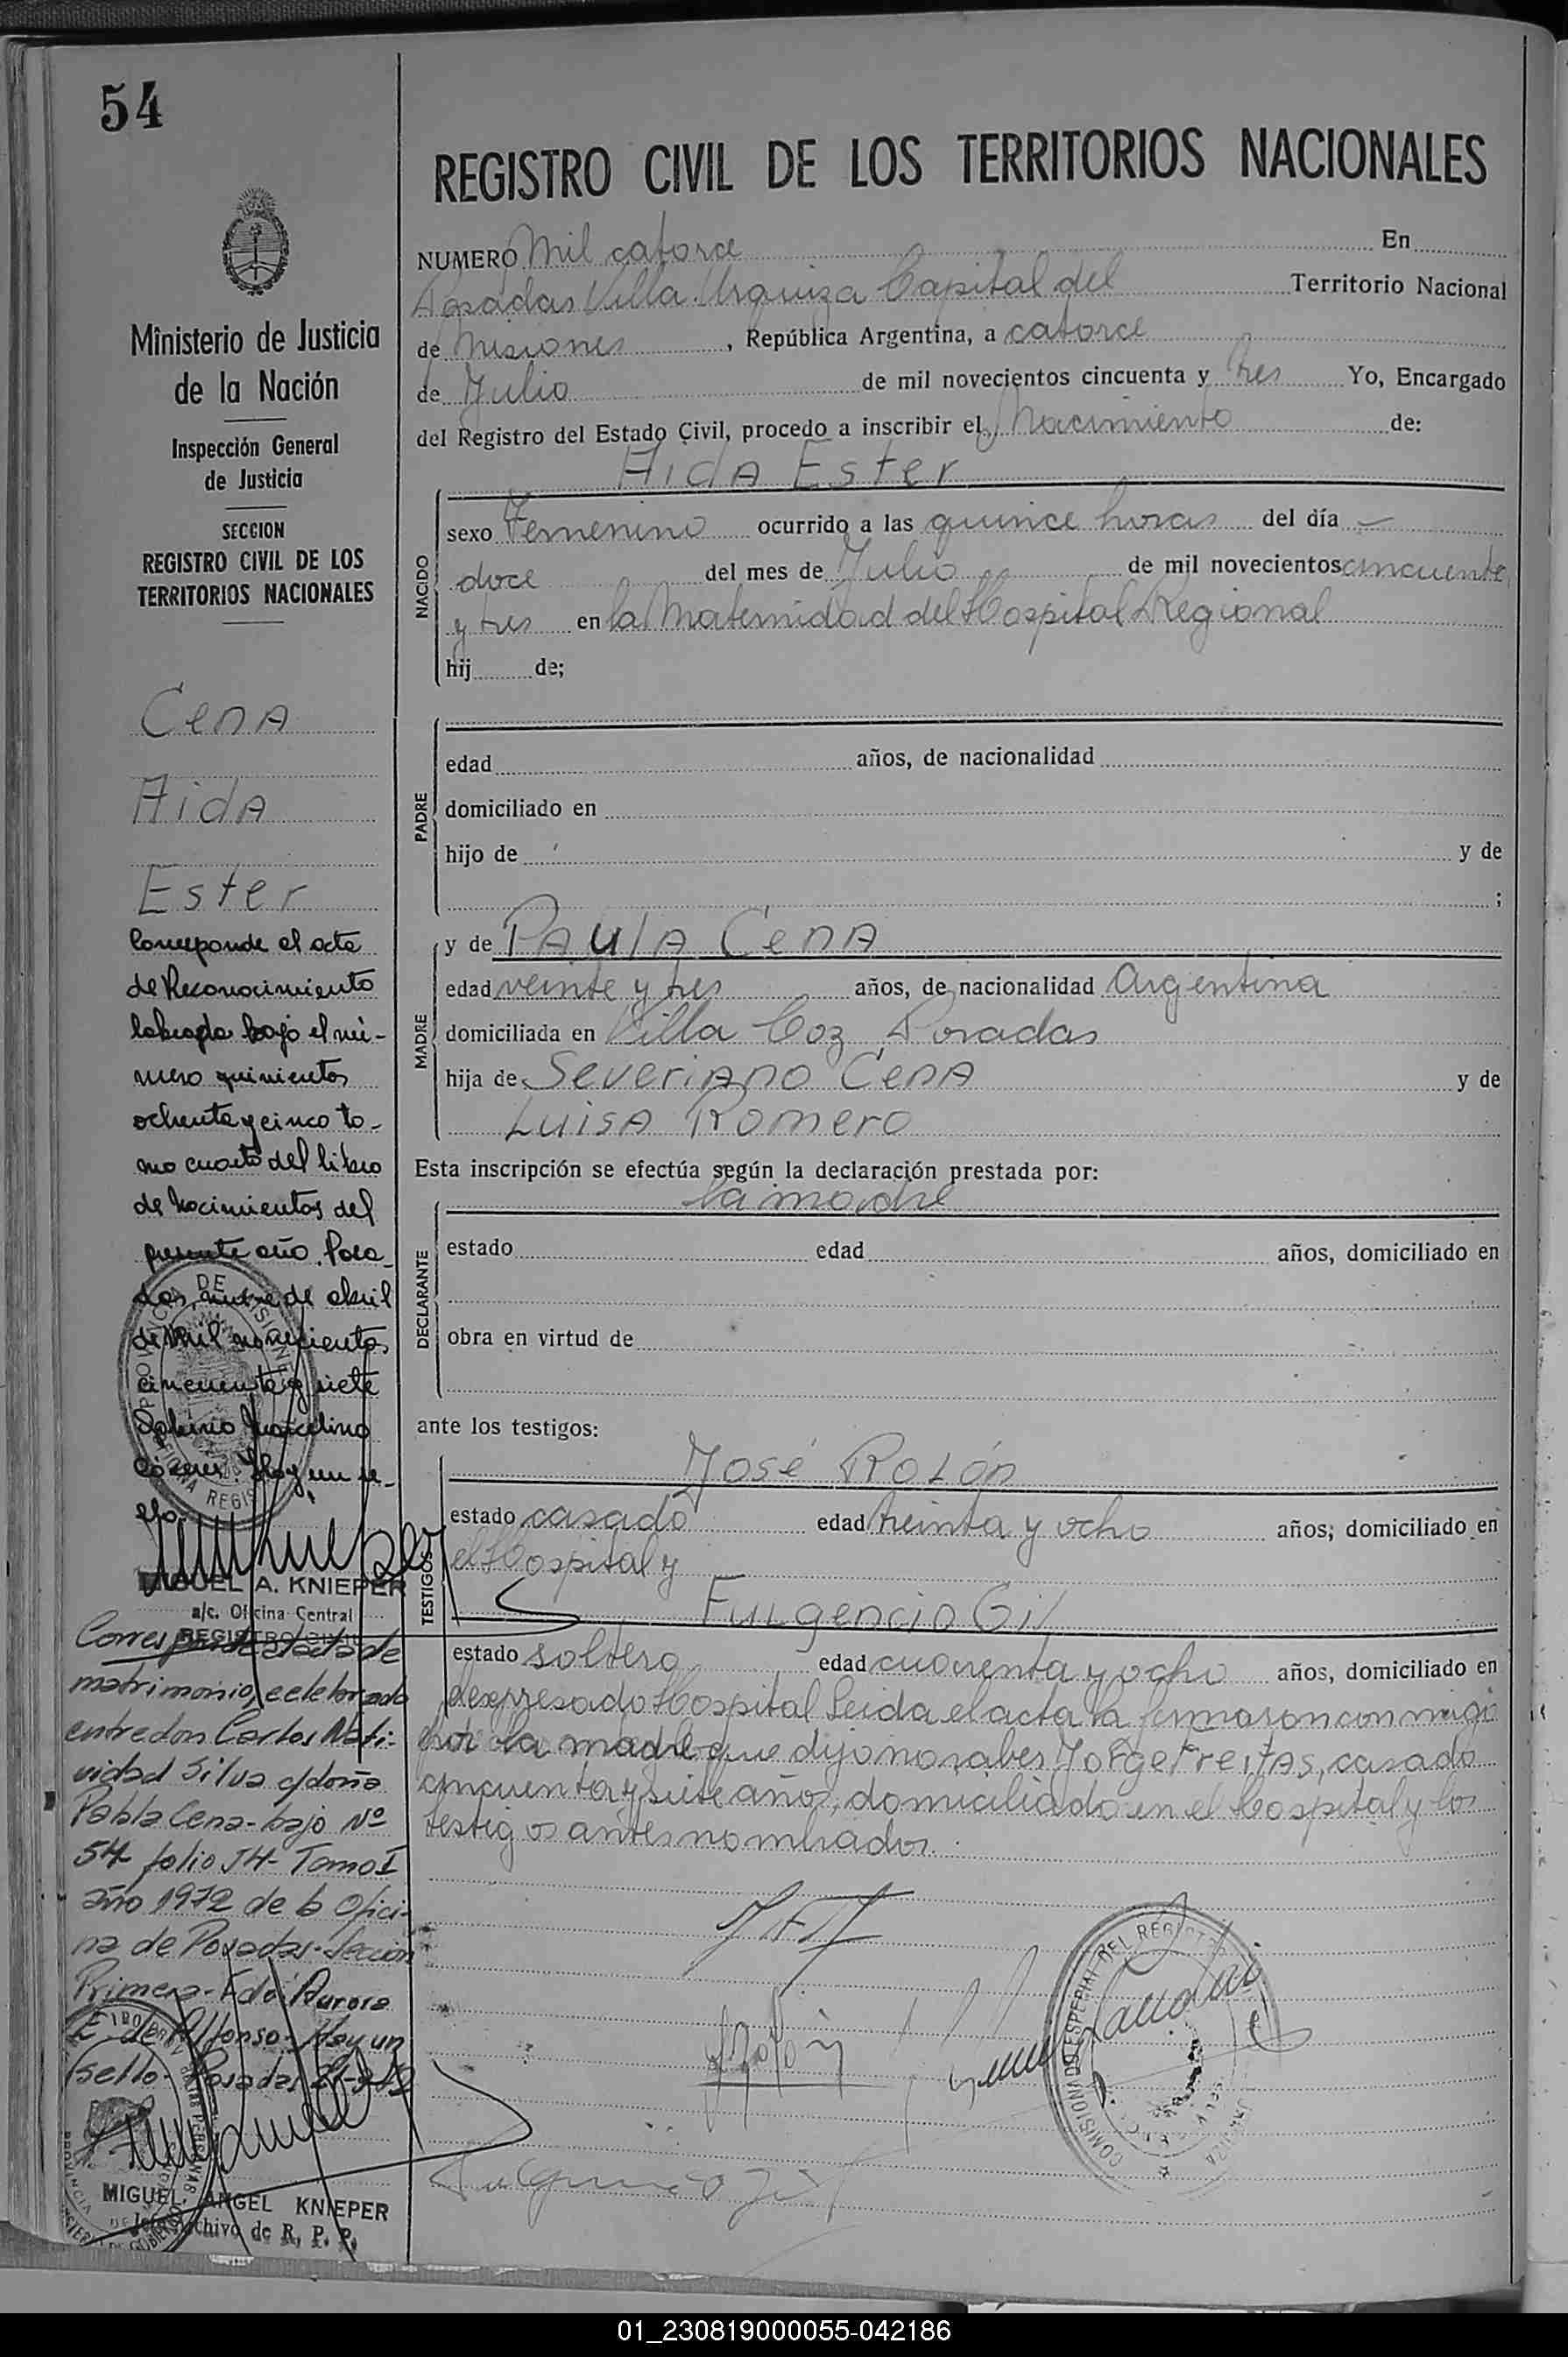 54
REGISTRO CIVIL DE LOS TERRITORIOS NACIONALES
Ministerio de Justicia
de la Nación
Inspección General
de Justicia
SECCION
REGISTRO CIVIL DE LOS
TERRITORIOS NACIONALES
Cena
Aida
Ester
Corresponde al acta
de Reconocimiento
labrada bajo el nú-
mero quinientos
ochenta y cinco to-
mo cuarto del libro
de Nacimientos del
presente año. Posa-
das, nueve de abril
de mil novecientos
cincuenta y siete
Marcelino
Hay un se-
llo.
MIGUEL A. KNIEPER
a/c. Oficina Central
REGISTRO CIVIL
Corresponde acta de
matrimonio celebrado
entre don Carlos Nati-
vidad Silva c/doña
Pabla Cena - bajo Nº
54 folio 54 - Tomo I
año 1972 de la Ofici-
na de Posadas - Sección
Primera - Fdo: Aurora
E. de Alfonso - Hay un
sello - Posadas
MIGUEL ANGEL KNIEPER
Jefe Archivo de R. P. P.
NUMERO Mil catorce En
Posadas Villa Urquiza Capital del Territorio Nacional
de Misiones, República Argentina, a catorce
de Julio de mil novecientos cincuenta y tres Yo, Encargado
del Registro del Estado Civil, procedo a inscribir el Nacimiento de:
Aida Ester
NACIDO
sexo Femenino ocurrido a las quince horas del día
doce del mes de Julio de mil novecientos cincuenta
y tres en la Maternidad del Hospital Regional
hij de;
PADRE
edad años, de nacionalidad
domiciliado en
hijo de y de
;
MADRE
y de Paula Cena
edad veinte y tres años, de nacionalidad Argentina
domiciliada en Villa Coz Posadas
hija de Severiano Cena y de
Luisa Romero
Esta inscripción se efectúa según la declaración prestada por:
la madre
DECLARANTE
estado edad años, domiciliado en
obra en virtud de
ante los testigos:
TESTIGOS
José Rolón
estado casado edad treinta y ocho años; domiciliado en
el Hospital y
Fulgencio Gil
estado soltero edad cuarenta y ocho años, domiciliado en
el expresado Hospital Leida el acta la firmaron conmigo
por la madre que dijo no saber Jorge Freitas, casado
cincuenta y siete años, domiciliado en el Hospital y los
testigos antes nombrados.
Fulgencio Gil
01_230819000055-042186